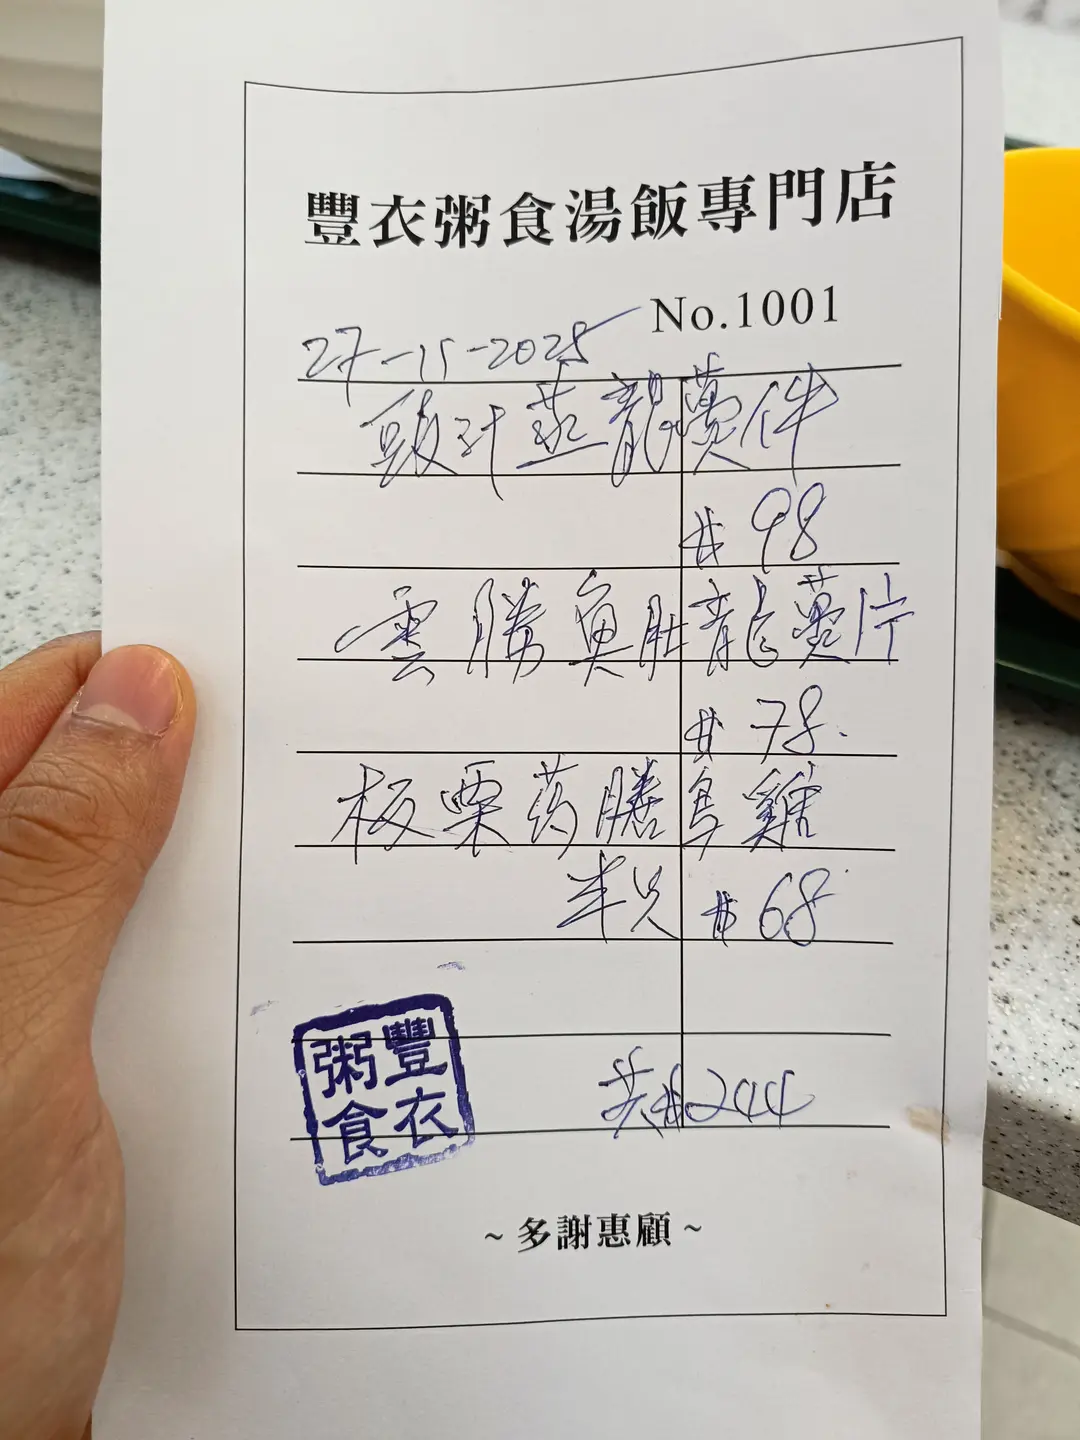 豐衣粥食湯飯專門店
No.1001
27-11-2025
頭汁蒸龍躉件
$98
雲勝魚肚龍躉片
$78.
板栗药膳烏雞
半只 $68
共$244
豐衣
粥食
~多謝惠顧~